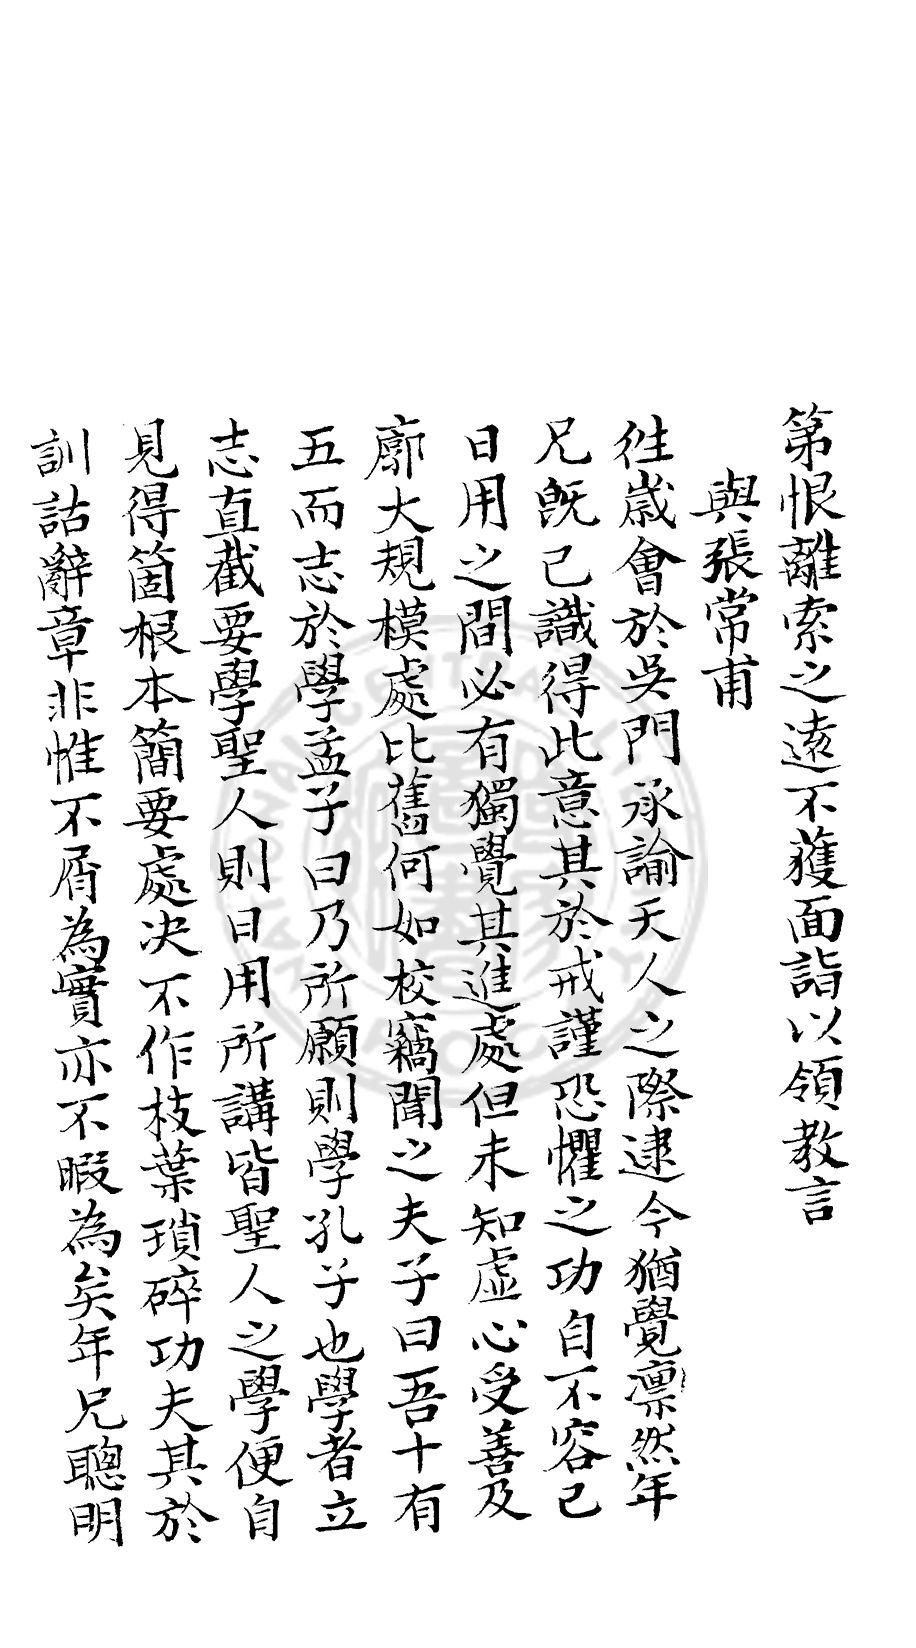 第恨離索之遠不獲面詣以領教言
與張常甫
徃歲會於吳門承諭天人之際逮今猶覺凛然年
兄旣已識得此意其於戒謹恐懼之功自不容已
日用之間必有獨覺其進處但未知虛心受善及
廓大規模處比舊何如校竊聞之夫子曰吾十有
五而志於學孟子曰乃所願則學孔子也學者立
志直截要學聖人則日用所講皆聖人之學便自
見得箇根本簡要處决不作枝葉瑣碎功夫其於
訓詁辭章非惟不屑為實亦不暇為矣年兄聰明